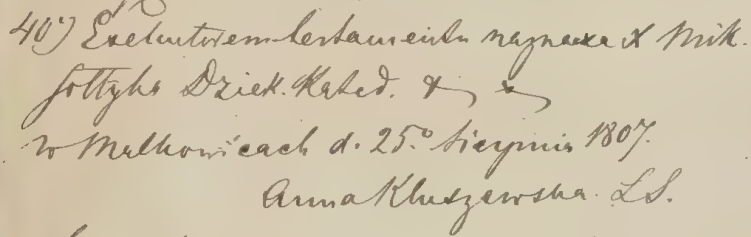 40) Exekutorem testamentu naznacza X Mik.
Sołtyka Dziek. Kated.
w Malkowicach d. 25º Sierpnia 1807.
Anna Kluszewska. L.S.